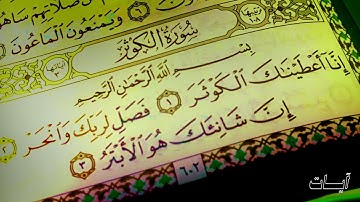 وَيَمْنَعُونَ الْمَاعُونَ
سُورَةُ الْكَوْثَرِ
بِسْمِ اللَّهِ الرَّحْمَٰنِ الرَّحِيمِ
إِنَّا أَعْطَيْنَاكَ الْكَوْثَرَ ١ فَصَلِّ لِرَبِّكَ وَانْحَرْ ٢
إِنَّ شَانِئَكَ هُوَ الْأَبْتَرُ ٣
٦٠٢
آيات